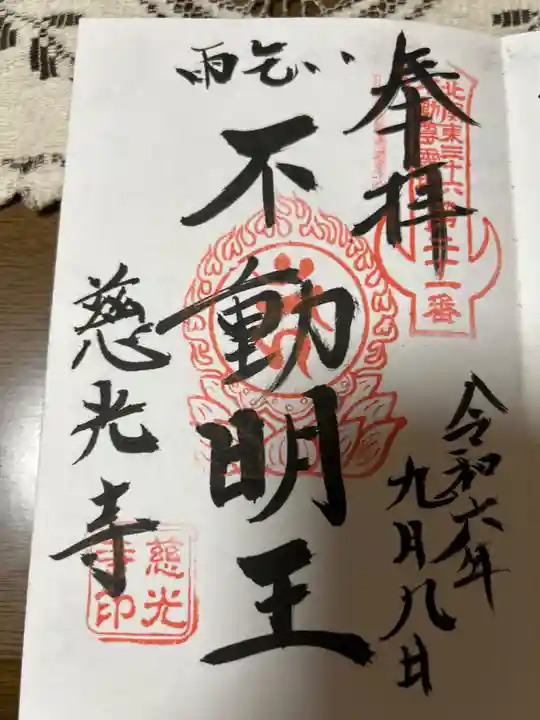 奉拝
北関東三十六
不動尊霊場第三十一番
令和六年
九月八日
雨乞い
不動明王
慈光寺
慈光
寺印